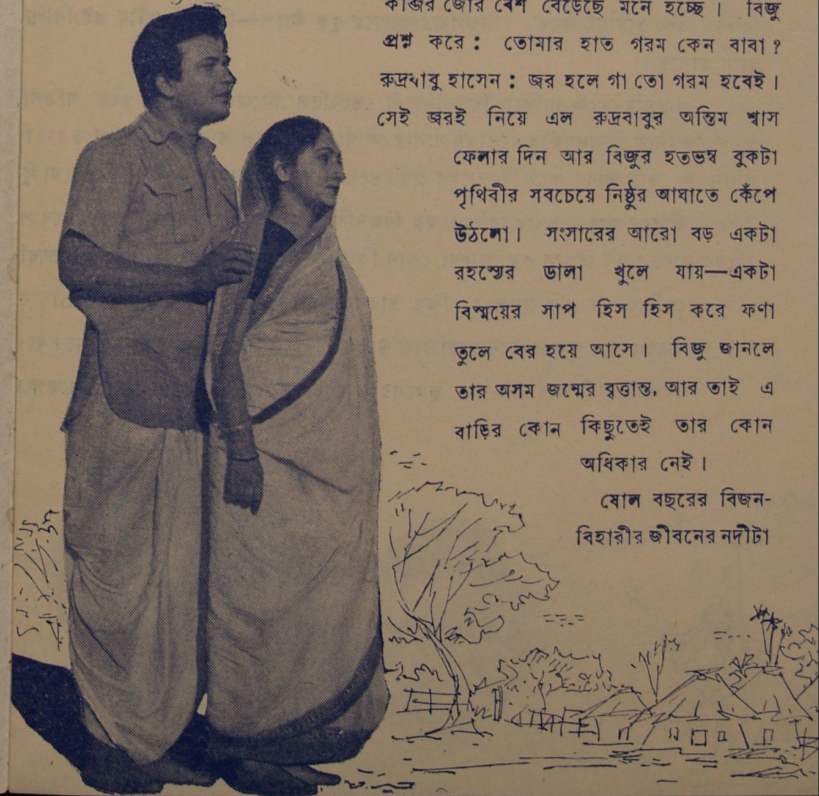 কব্জির জোর বেশ বেড়েছে মনে হচ্ছে। বিজু
প্রশ্ন করে : তোমার হাত গরম কেন বাবা ?
রুদ্রবাবু হাসেন : জর হলে গা তো গরম হবেই।
সেই জরই নিয়ে এল রুদ্রবাবুর অন্তিম শ্বাস
ফেলার দিন আর বিজুর হতভম্ব বুকটা
পৃথিবীর সবচেয়ে নিষ্ঠুর আঘাতে কেঁপে
উঠলো। সংসারের আরো বড় একটা
রহস্যের ডালা খুলে যায়—একটা
বিস্ময়ের সাপ হিস হিস করে ফণা
তুলে বের হয়ে আসে। বিজু জানলে
তার অসম জন্মের বৃত্তান্ত, আর তাই এ
বাড়ির কোন কিছুতেই তার কোন
অধিকার নেই।
ষোল বছরের বিজন-
বিহারীর জীবনের নদীটা